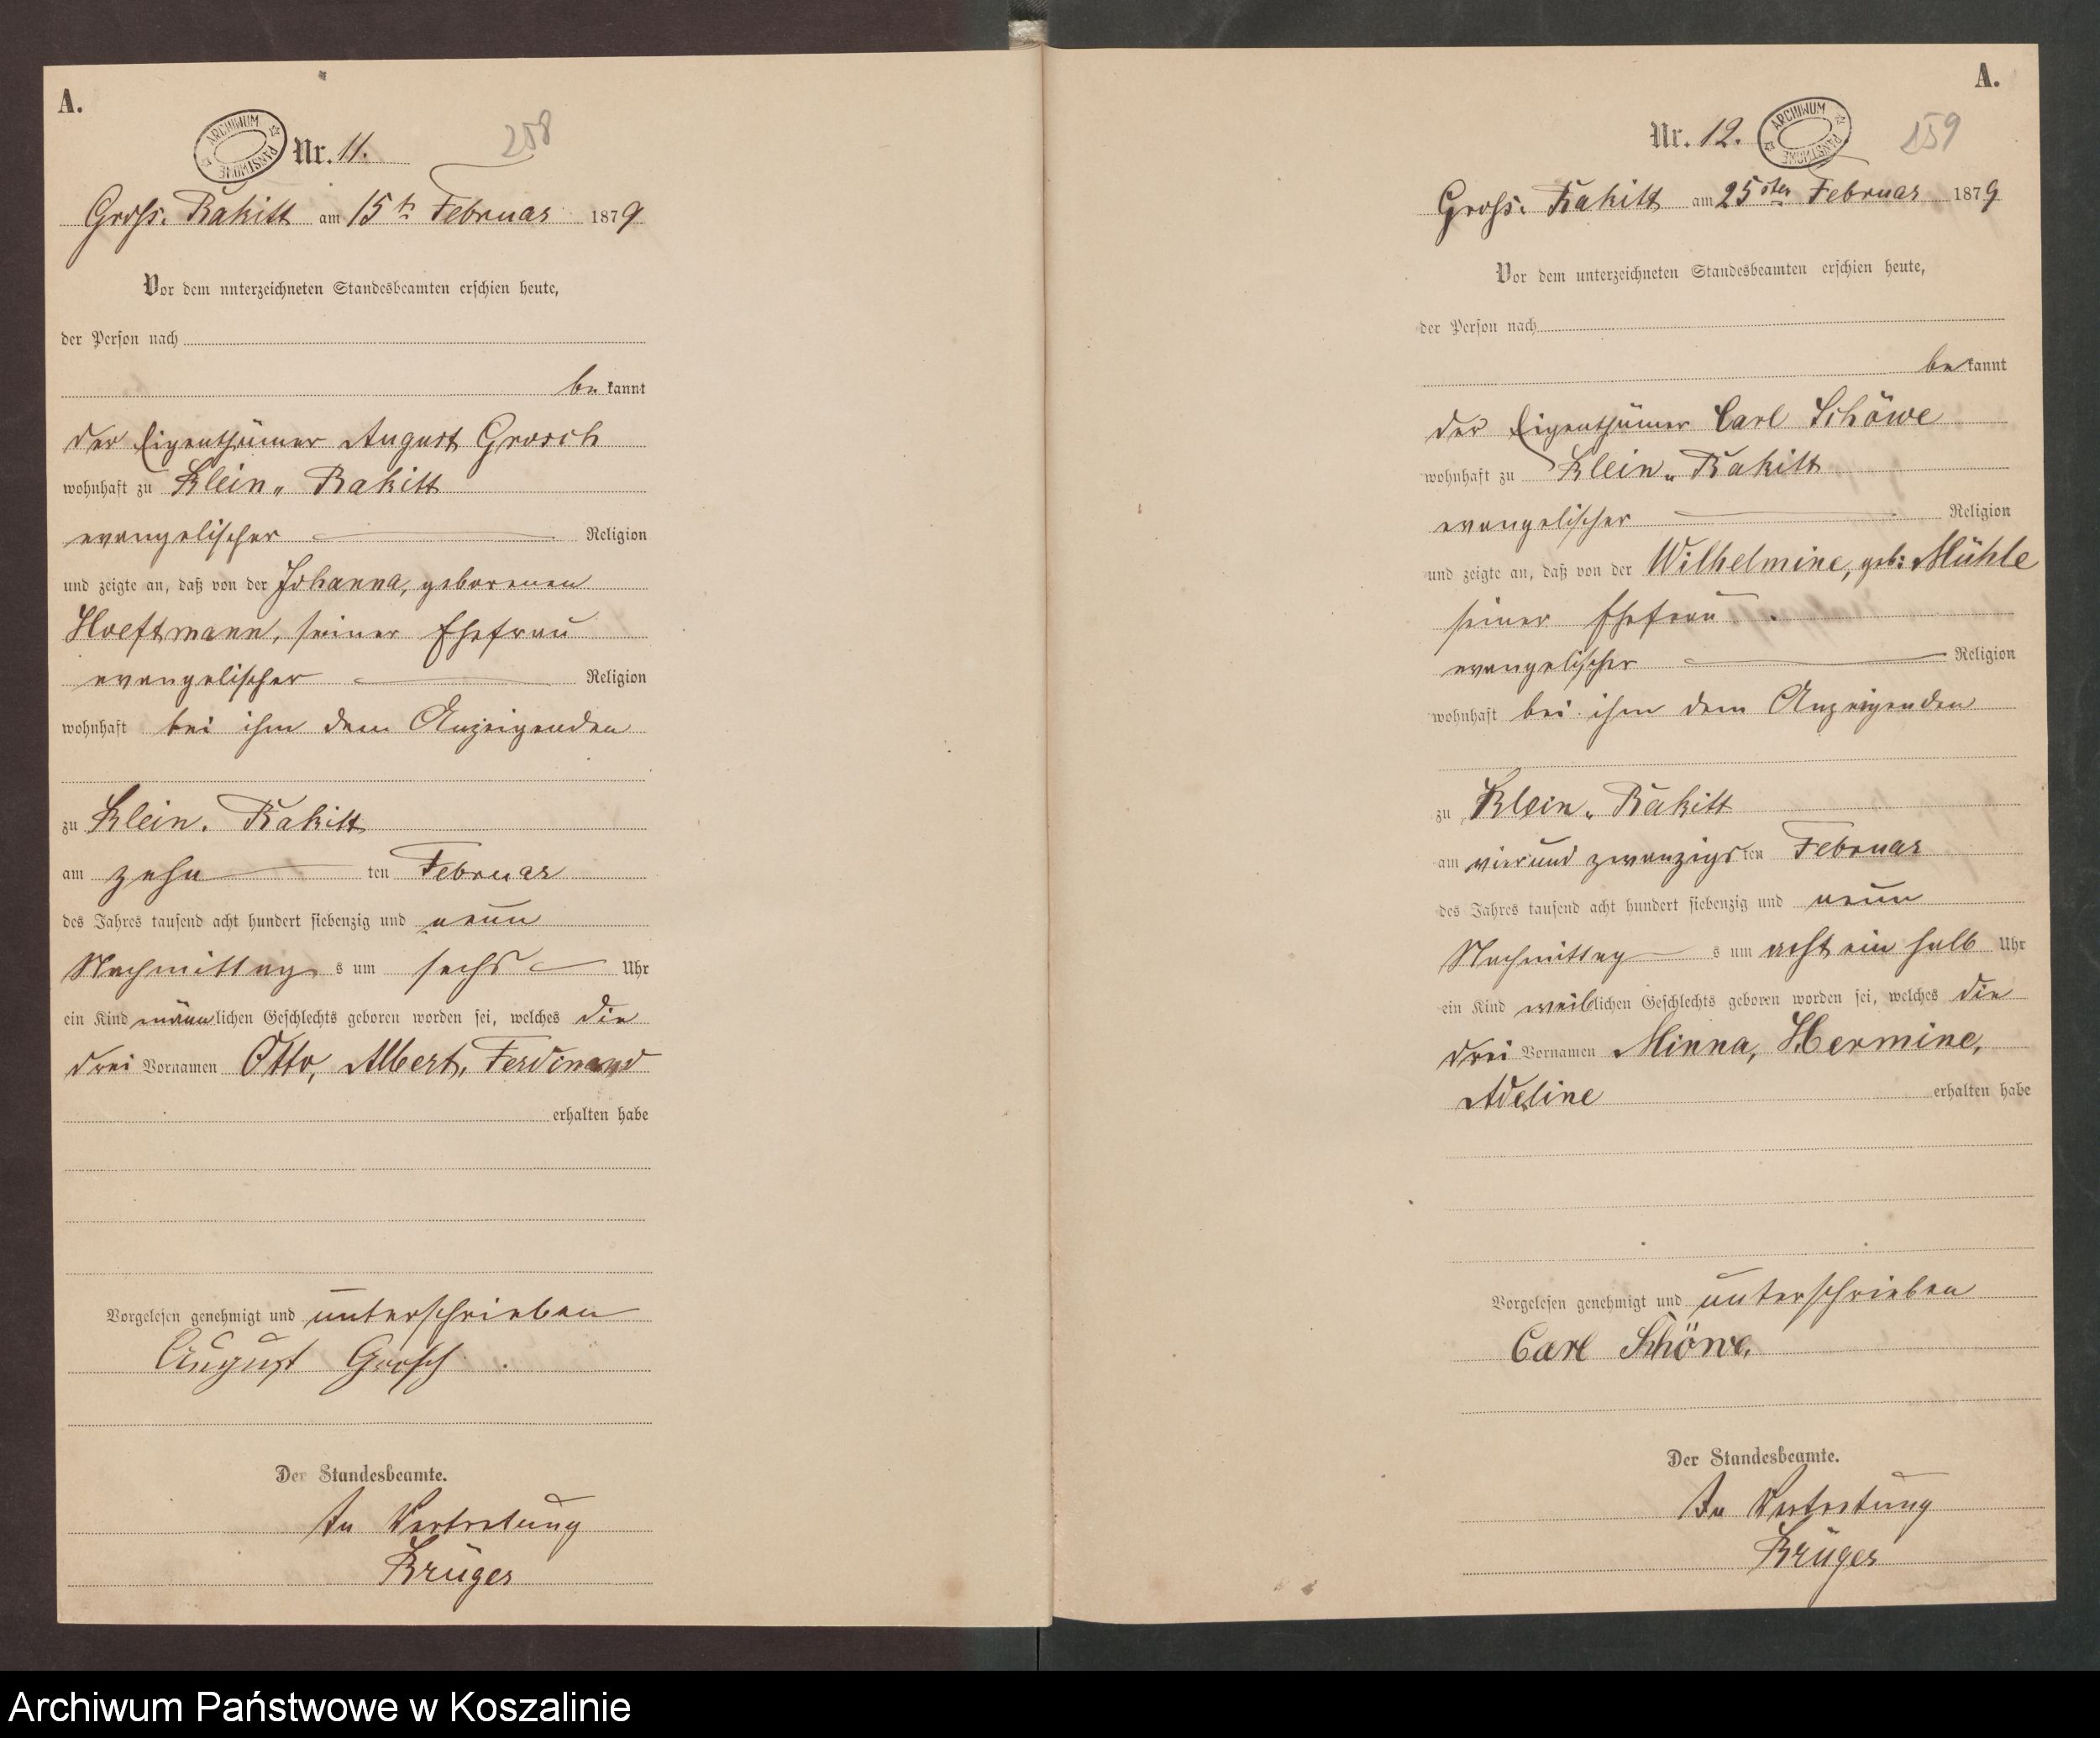 A.
ARCHIWUM PAŃSTWOWE
Nr. 11.
258
Gross. Rakitt am 15ten Februar 1879
Vor dem unterzeichneten Standesbeamten erschien heute,
der Person nach
be kannt
der Eigenthümer August Grosch
wohnhaft zu Klein„ Rakitt
evangelischer Religion
und zeigte an, daß von der Johanna, geborenen
Hoeftmann, seiner Ehefrau
evangelischer Religion
wohnhaft bei ihm dem Anzeigenden
zu Klein. Rakitt
am zehn ten Februar
des Jahres tausend acht hundert siebenzig und neun
Nachmittag s um sechs Uhr
ein Kind männlichen Geschlechts geboren worden sei, welches die
drei Vornamen Otto, Albert, Ferdinand
erhalten habe
Vorgelesen genehmigt und unterschrieben
August Grosch.
Der Standesbeamte.
In Vertretung
Krüger
A.
Nr. 12.
ARCHIWUM PAŃSTWOWE
259
Gross. Rakitt am 25sten Februar 1879
Vor dem unterzeichneten Standesbeamten erschien heute,
der Person nach
be kannt
der Eigenthümer Carl Schöwe
wohnhaft zu Klein„ Rakitt
evangelischer Religion
und zeigte an, daß von der Wilhelmine, geb: Mühle
seiner Ehefrau
evangelischer Religion
wohnhaft bei ihm dem Anzeigenden
zu Klein„ Rakitt
am vierund zwanzigs ten Februar
des Jahres tausend acht hundert siebenzig und neun
Nachmittag s um acht ein halb Uhr
ein Kind weiblichen Geschlechts geboren worden sei, welches die
drei Vornamen Minna, Hermine,
Adeline erhalten habe
Vorgelesen genehmigt und unterschrieben
Carl Schöwe,
Der Standesbeamte.
In Vertretung
Krüger
Archiwum Państwowe w Koszalinie